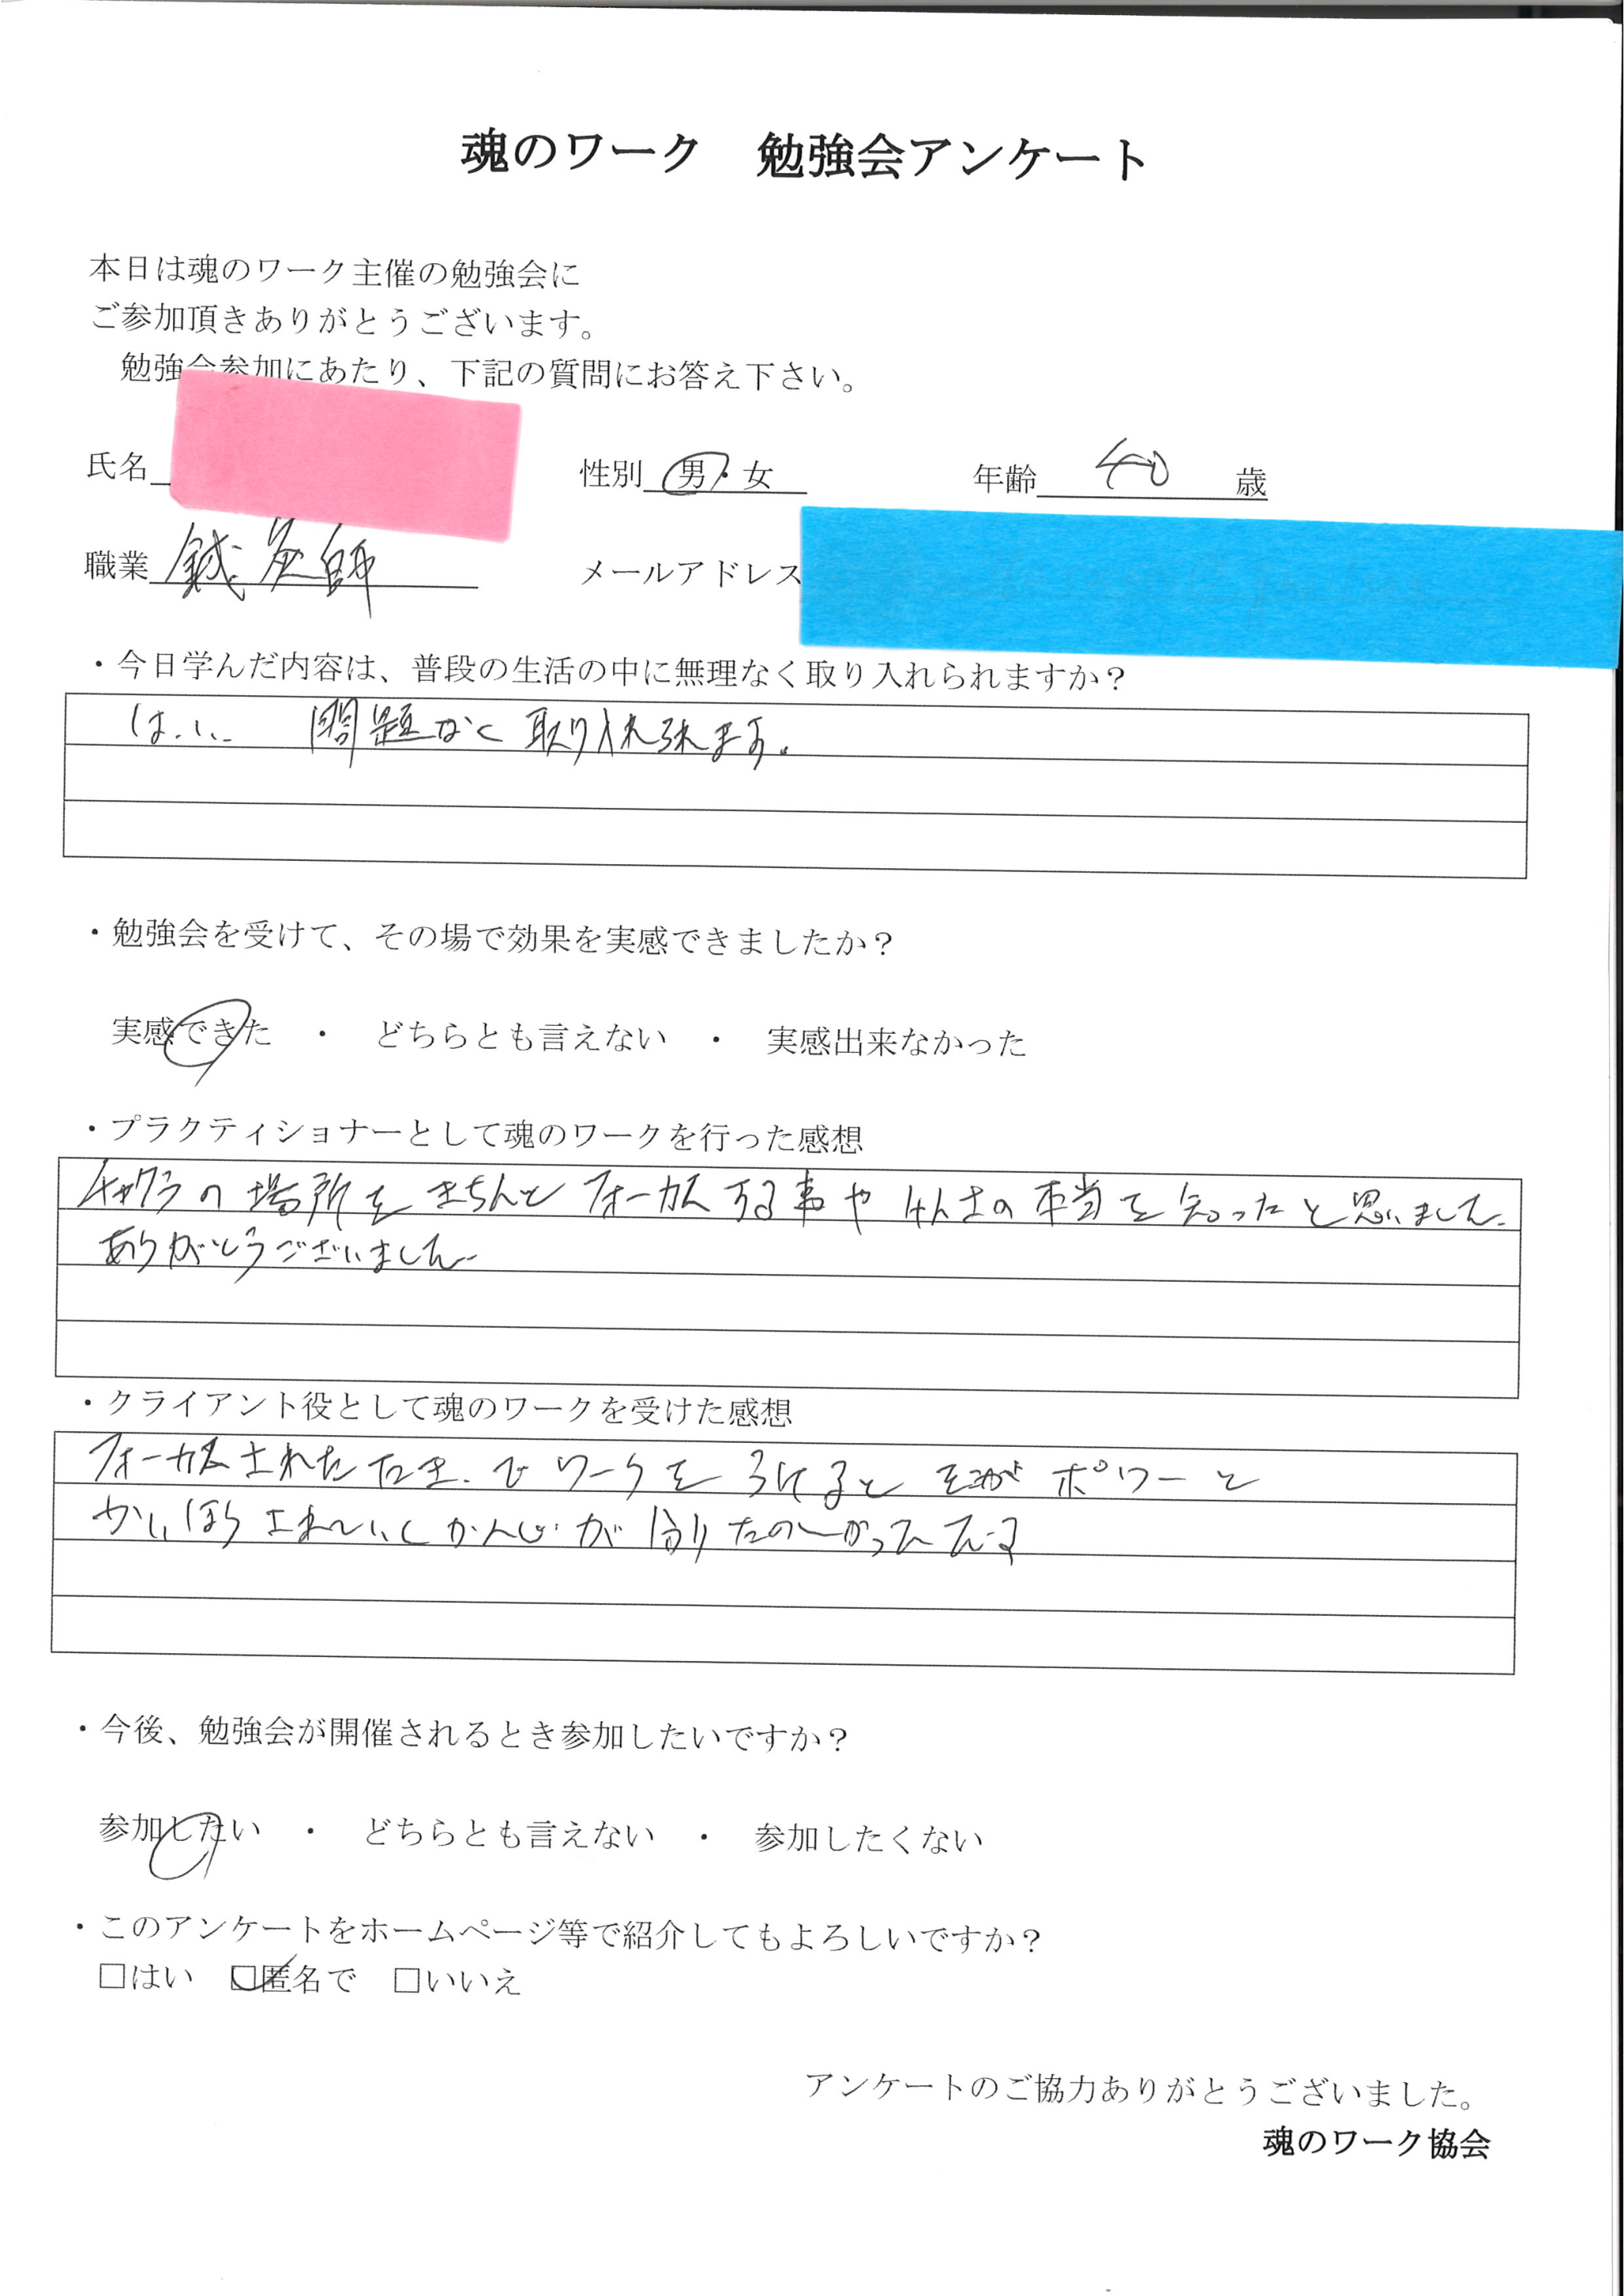 魂のワーク　勉強会アンケート
本日は魂のワーク主催の勉強会に
ご参加頂きありがとうございます。
勉強会参加にあたり、下記の質問にお答え下さい。
氏名　性別 男・女　年齢 40 歳
職業 鍼灸師　メールアドレス
・今日学んだ内容は、普段の生活の中に無理なく取り入れられますか？
はい　問題なく取り入れられます。
・勉強会を受けて、その場で効果を実感できましたか？
実感できた　・　どちらとも言えない　・　実感出来なかった
・プラクティショナーとして魂のワークを行った感想
チャクラの場所をきちんとフォーカスする事や 本当を知ったと思いました
ありがとうございました
・クライアント役として魂のワークを受けた感想
フォーカスされた ワークを うけると そこが ポワーと
かいほうされていくかんじが たのしかったです
・今後、勉強会が開催されるとき参加したいですか？
参加したい　・　どちらとも言えない　・　参加したくない
・このアンケートをホームページ等で紹介してもよろしいですか？
□はい　□匿名で　□いいえ
アンケートのご協力ありがとうございました。
魂のワーク協会